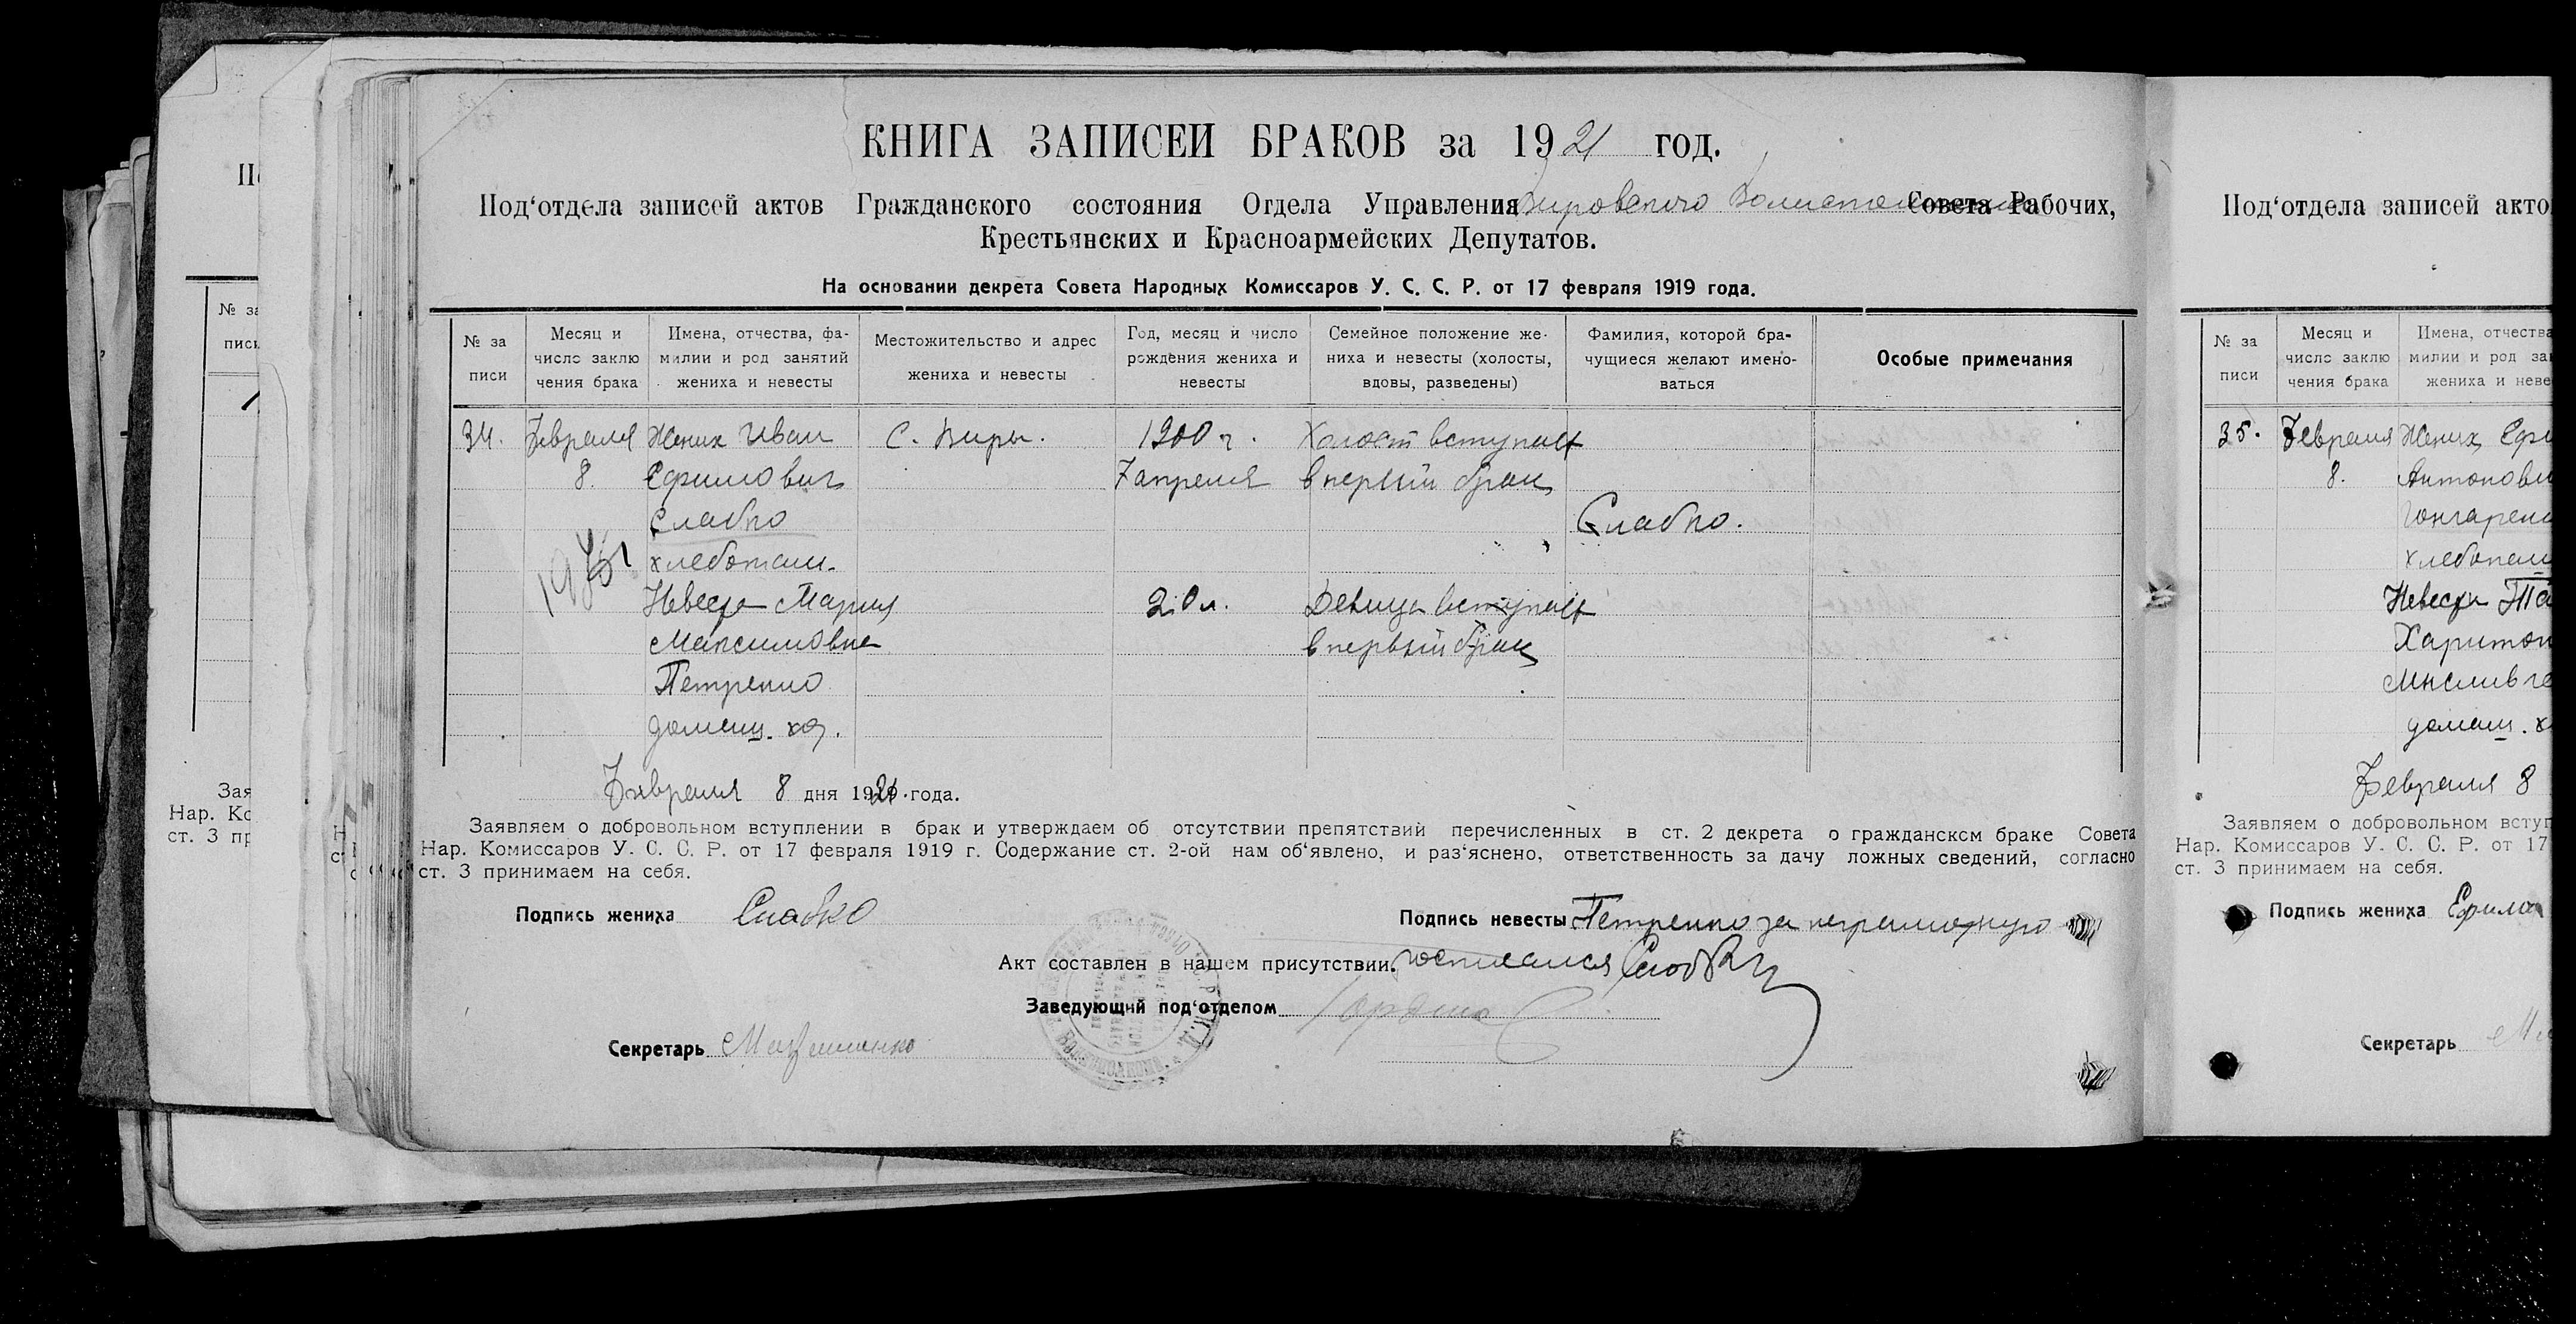 КНИГА ЗАПИСЕЙ БРАКОВ за 1921 год.
Под‘отдела записей актов Гражданского состояния Отдела Управления Вировского Совета Рабочих,
Крестьянских и Красноармейских Депутатов.
На основании декрета Совета Народных Комиссаров У. С. С. Р. от 17 февраля 1919 года.
№ за
писи
Месяц и
число заклю
чения брака
Имена, отчества, фа-
милии и род занятий
жениха и невесты
Местожительство и адрес
жениха и невесты
Год, месяц и число
рождения жениха и
невесты
Семейное положение же-
ниха и невесты (холосты,
вдовы, разведены)
Фамилия, которой бра-
чущиеся желают имено-
ваться
Особые примечания
34. Февраля Жених Иван С. Виры. 1900 г. Холост вступает
8. Ефимович 7 апреля в первый брак
Слабко Слабко.
хлебопаш.
Невеста Мария 20 л. Девица вступает
Максимовна в первый брак
Петренко
домаш. хоз.
Февраля 8 дня 1921 года.
Заявляем о добровольном вступлении в брак и утверждаем об отсутствии препятствий перечисленных в ст. 2 декрета о гражданском браке Совета
Нар. Комиссаров У. С. С. Р. от 17 февраля 1919 г. Содержание ст. 2-ой нам об‘явлено, и раз‘яснено, ответственность за дачу ложных сведений, согласно
ст. 3 принимаем на себя.
Подпись жениха Слабко
Подпись невесты Петренко за неграмотную
Акт составлен в нашем присутствии.
Заведующий под‘отделом
Секретарь
Под‘отдела записей акто
№ за
писи
Месяц и
число заклю
чения брака
Имена, отчества
милии и род за
жениха и неве
35. Февраля Жених Ефи
8. Антонови
Гончарен
хлебопаш
Невеста Та
Харитон
Мисливче
домаш. х
Февраля 8
Заявляем о добровольном вступ
Нар. Комиссаров У. С. С. Р. от 17
ст. 3 принимаем на себя.
Подпись жениха Ефим
Секретарь
№ за
писи
Зая
Нар. Ко
ст. 3 пр